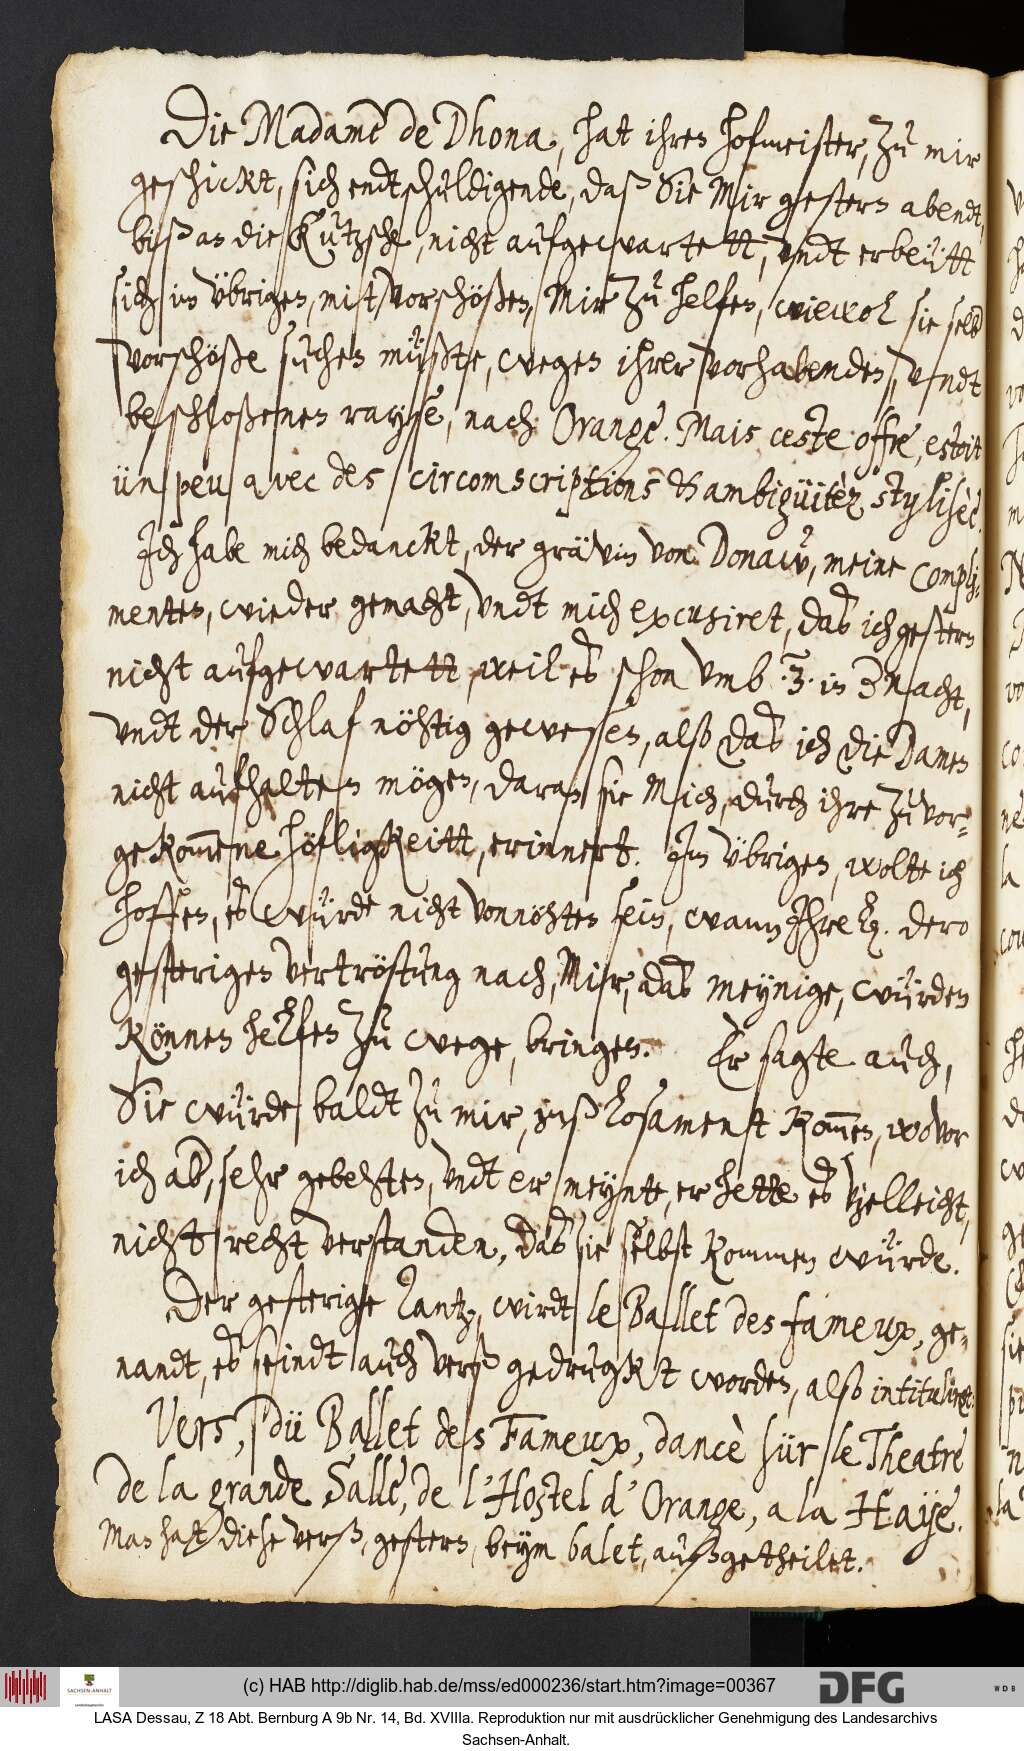 Die Madame de Dhona, hat ihren hofmeister, zu mir
geschickt, sich endtschuldigende, daß Sie Mir gestern abendt,
biß an die Kutzsche, nicht aufgewartett, undt erbeütt
sich in übrigen, mit vorschößen, Mir zu helfen, wiewol sie selb
vorschöße suchen müßte, wegen ihrer vorhabenden, undt
beschloßenen rayse, nach Orange. Mais ceste offre, estoit
ün peu avec des circomscriptions & ambigüitèz stylisèe.
Jch habe mich bedanckt, der grävin von Donaw, meine compli-
menten, wieder gemacht, undt mich excusiret, daß ich gestern
nicht aufgewartett, weil es schon umb .3. in der nacht,
undt der Schlaf nöhtig gewesen, also daß ich die Damen
nicht aufhalten mögen, daran sie Mich, durch ihre zuvor-
gekommene höfligkeitt, erinnert. Jm übrigen, wolte ich
hoffen, es würde nicht vonnöhten sein, wann Jhre L. dero
gesteriges vertröstung nach, Mir, das meynige, würden
können helfen zu wege, bringen. Er sagte auch,
Sie würde baldt zu mir, inß losament kommen, wovor
ich aber, sehr gebehten, undt er meynte, er hette es vielleicht,
nicht recht verstanden, daß sie selbst kommen würde.
Der gesterige Tantz, wirdt le Ballet des fameux, ge-
nandt, es seindt auch verß gedruckt worden, also intituliret:
Vers, dü Ballet des Fameux, dancè sür le Theatre
de la grande Salle, de l'Hostel d'Orange, a la Haÿe.
Man hat diese verß, gestern, beym balet, außgetheilet.
(c) HAB http://diglib.hab.de/mss/ed000236/start.htm?image=00367
SACHSEN-ANHALT
DFG
WDB
LASA Dessau, Z 18 Abt. Bernburg A 9b Nr. 14, Bd. XVIIIa. Reproduktion nur mit ausdrücklicher Genehmigung des Landesarchivs
Sachsen-Anhalt.